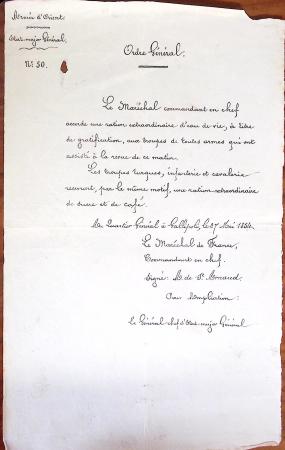 Armée d'Orient.
Etat-major Général.
N° 50.
Ordre Général.
Le Maréchal commandant en chef
accorde une ration extraordinaire d'eau de vie, à titre
de gratification, aux troupes de toutes armes qui ont
assisté à la revue de ce matin.
Les troupes turques, infanterie et cavalerie
recevront, par le même motif, une ration extraordinaire
de sucre et de café.
Au Quartier Général à Gallipoli, le 27 Mai 1854.
Le Maréchal de France,
Commandant en chef.
Signé: A. de St Arnaud.
Pour Ampliation:
Le Général chef d'Etat-major Général